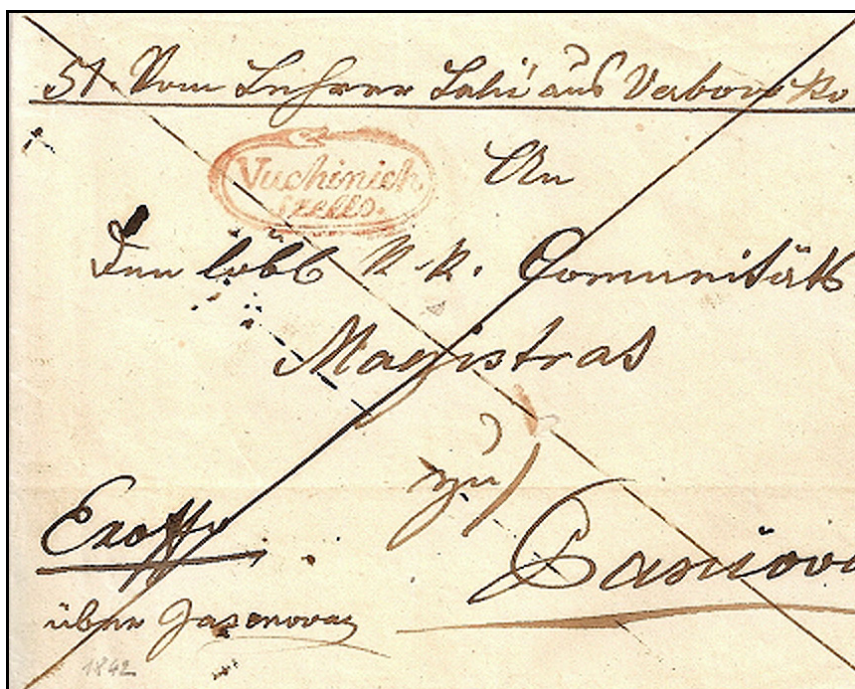 51. Vom Lehrer Lalić aus Verbovsko
Vuchinich
szello.
An
Den löbl K. k. Comunitäts
Magistrat
zu
Exoffo
über Jasenovaz
1842